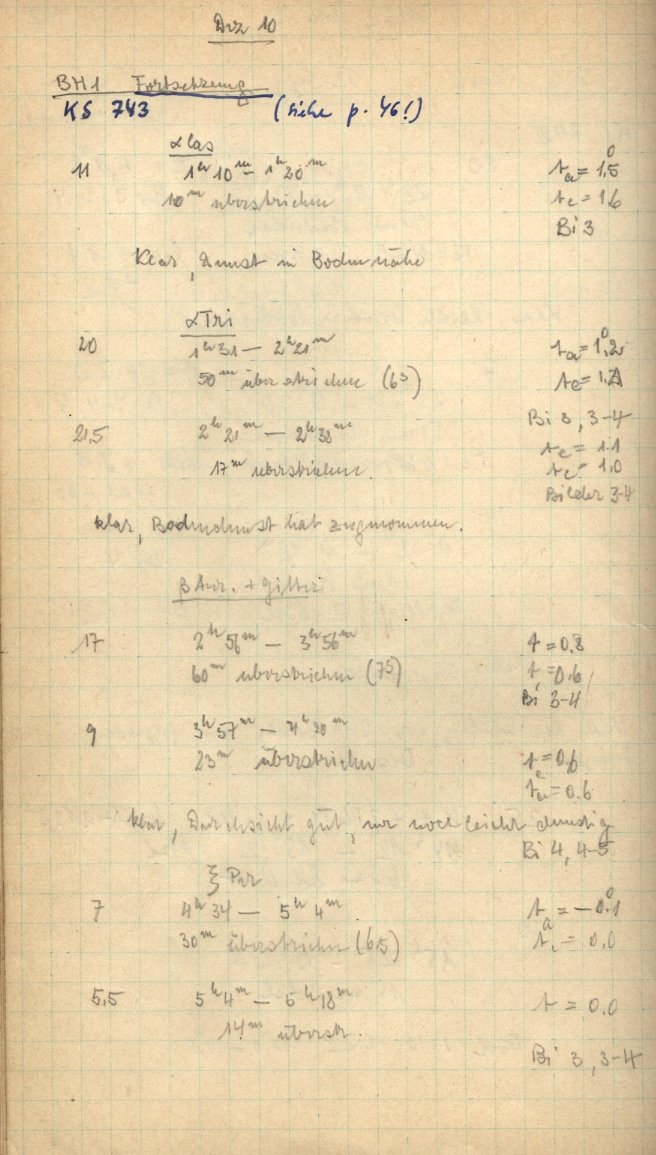 Dez 10
BH1 Fortsetzung
KS 743 (siehe p. 46!)
α Cas
11 1ʰ 10ᵐ – 1ʰ 20ᵐ tₐ = 1.5°
10ᵐ überstrichen tₑ = 1.6
Bi 3
Klar, Dunst in Bodennähe
α Tri
20 1ʰ 31 – 2ʰ 21ᵐ tₐ = 1.2°
50ᵐ überstrichen (6ˢ) tₑ =
Bi 3, 3-4
21,5 2ʰ 21ᵐ – 2ʰ 38ᵐ = 1.1
17ᵐ überstrichen. tₑ = 1.0
Bilder 3-4
klar, Bodendunst hat zugenommen.
β Aur. + Gitter
17 2ʰ 56ᵐ – 3ʰ 56ᵐ t = 0.8
60ᵐ überstrichen (7ˢ) t = 0.6
Bi 3-4
9 3ʰ 57ᵐ – 4ʰ 20ᵐ
23ᵐ überstrichen t = 0.6
= 0.6
klar, Durchsicht gut, nur noch leicht dunstig
Bi 4, 4-5
ξ Per
7 4ʰ 34 – 5ʰ 4ᵐ tₐ = – 0.1°
30ᵐ überstrichen (6,5) = 0.0
5,5 5ʰ 4ᵐ – 5ʰ 18ᵐ t = 0,0
14ᵐ überstr.
Bi 3, 3-4